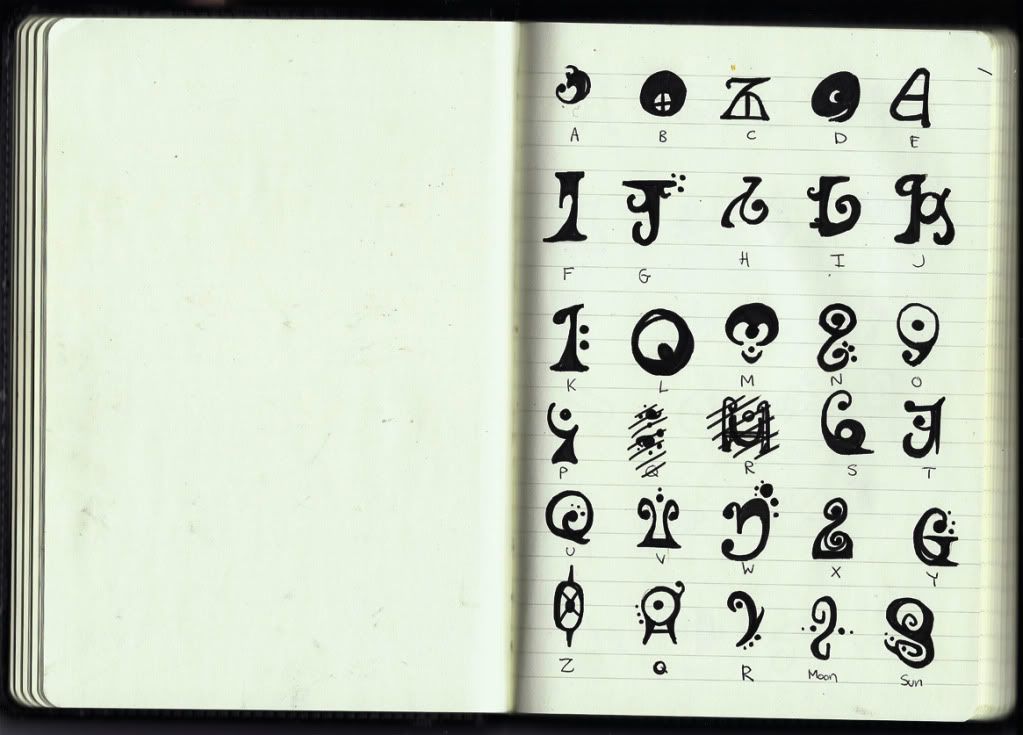 A B C D E
F G H I J
K L M N O
P Q R S T
U V W X Y
Z Q R Moon Sun